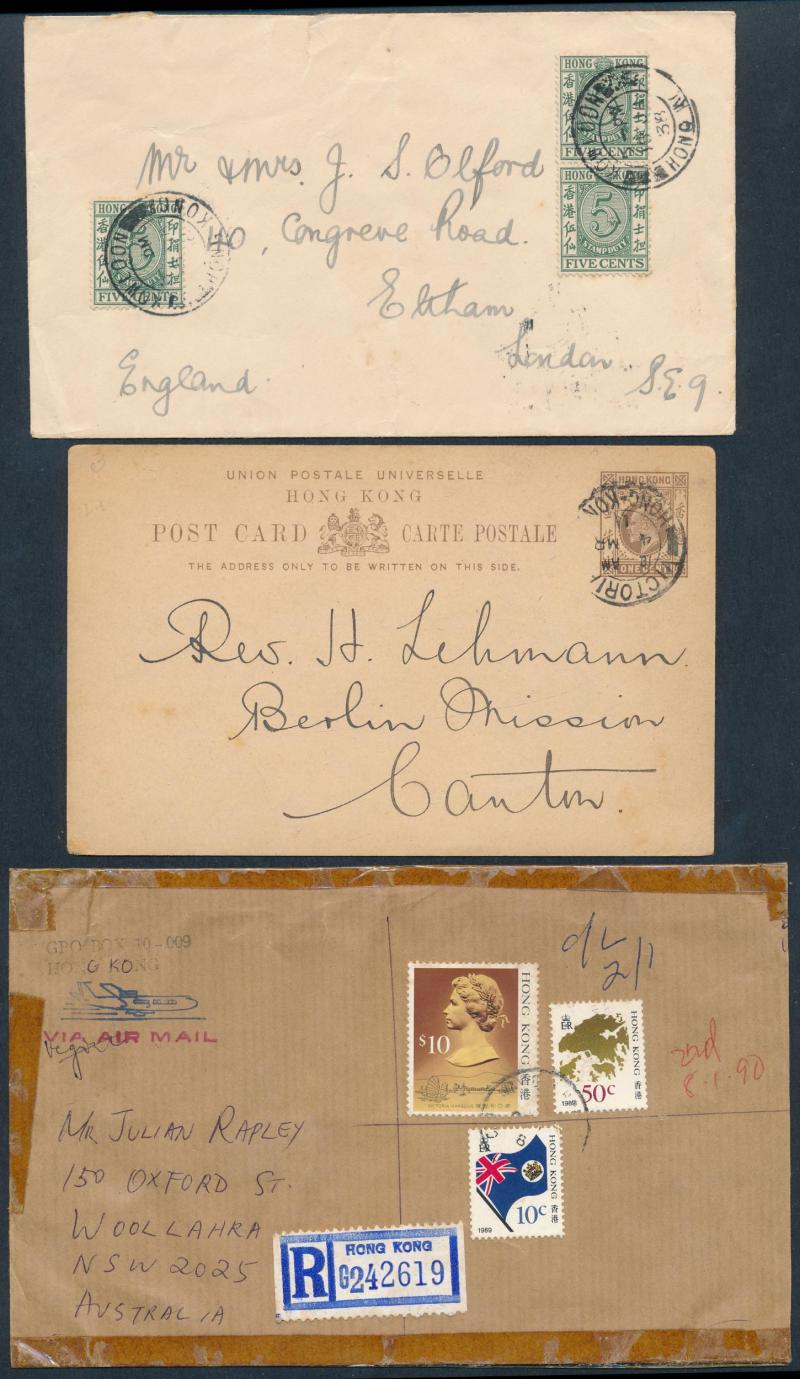 HONG KONG
香港伍仙
印捐士担
FIVE CENTS
HONG KONG
香港伍仙
印捐士担
5¢
STAMP DUTY
FIVE CENTS
HONG KONG
香港伍仙
印捐士担
FIVE CENTS
KOWLOON
HONG KONG
Mr & Mrs. J. S. Olford
40, Congreve Road.
Eltham
London S.E.9.
England.
UNION POSTALE UNIVERSELLE
HONG KONG
POST CARD CARTE POSTALE
THE ADDRESS ONLY TO BE WRITTEN ON THIS SIDE.
HONG KONG
ONE CENT
VICTORIA HONG-KON
10 AM
4 MR
Rev. H. Lehmann.
Berlin Mission
Canton.
GPO BOX 10-009
HONG KONG
VIA AIR MAIL
2/1
2nd
8.1.90
HONG KONG 香港
$10
VICTORIA HARBOUR 維多利亞港
HONG KONG 香港
50c
1989
HONG KONG 香港
10c
1989
Mr JULIAN RAPLEY
150 OXFORD ST.
WOOLLAHRA
NSW 2025
AUSTRALIA
R
HONG KONG
G242619